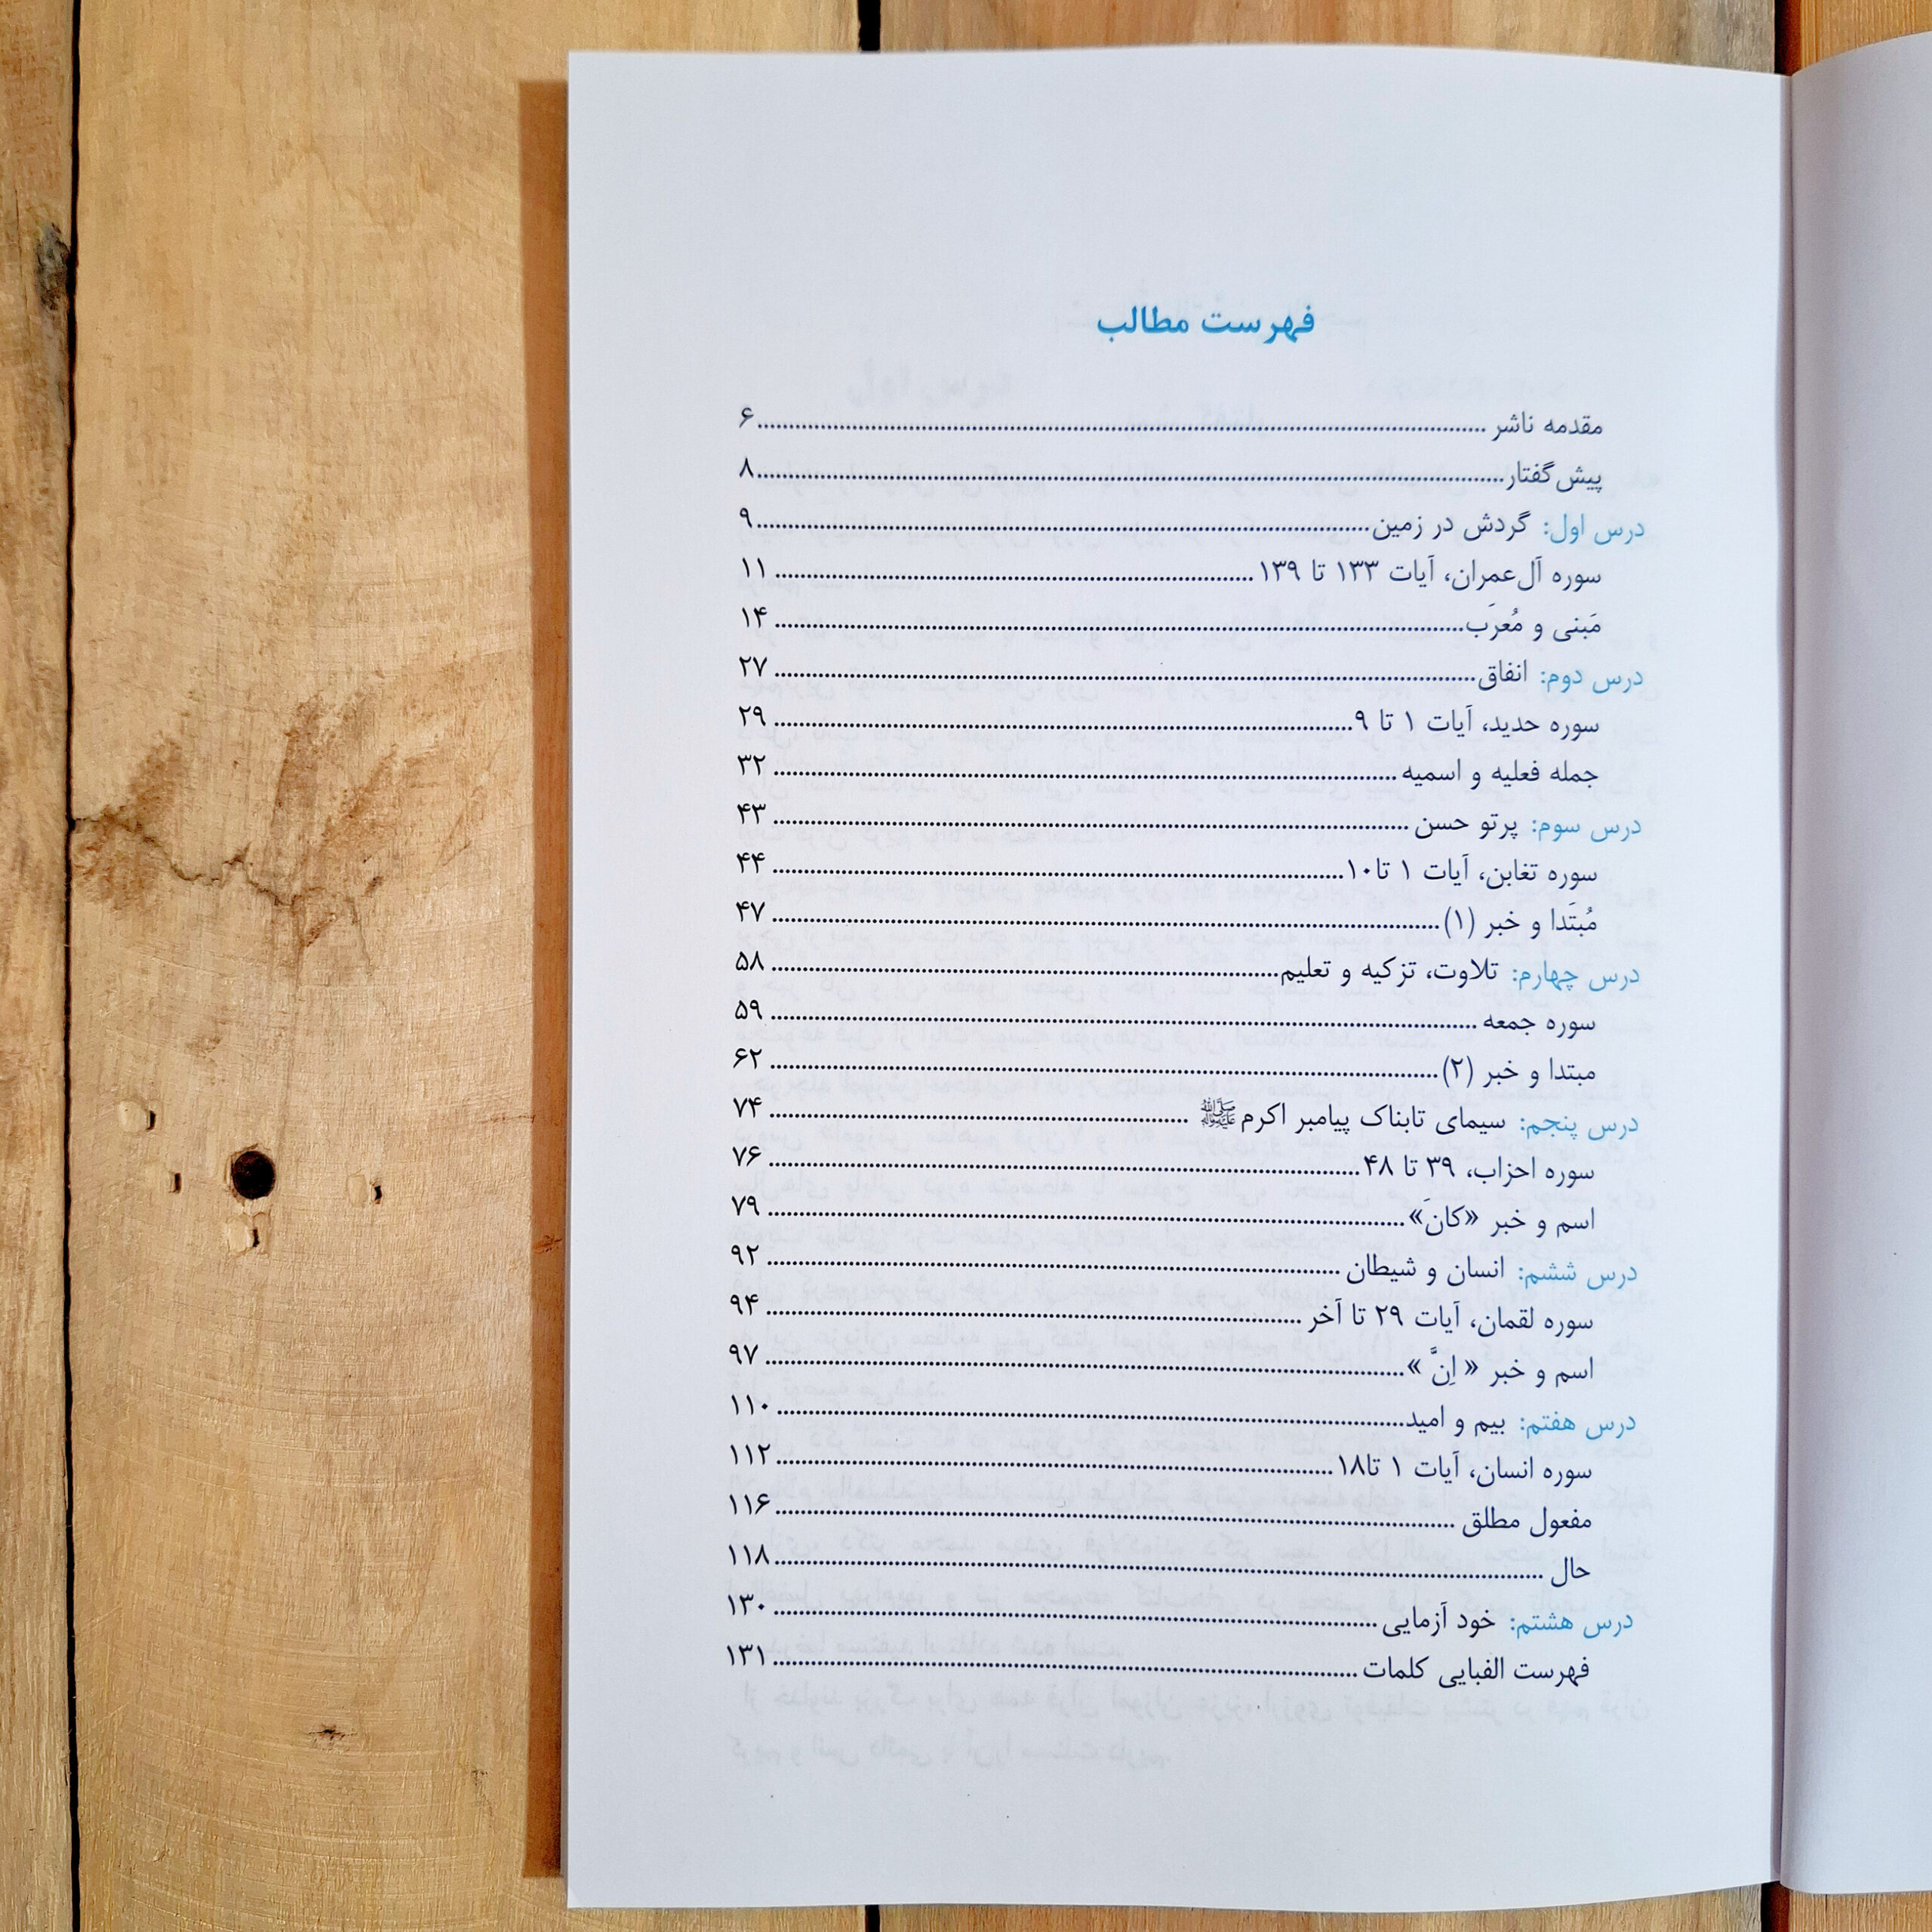 فهرست مطالب
مقدمه ناشر ........ ۶
پیش‌گفتار ........ ۸
درس اول: گردش در زمین ........ ۹
سوره آل‌عمران، آیات ۱۳۳ تا ۱۳۹ ........ ۱۱
مَبنی و مُعرَب ........ ۱۴
درس دوم: انفاق ........ ۲۷
سوره حدید، آیات ۱ تا ۹ ........ ۲۹
جمله فعلیه و اسمیه ........ ۳۲
درس سوم: پرتو حسن ........ ۴۳
سوره تغابن، آیات ۱ تا۱۰ ........ ۴۴
مُبتَدا و خبر (۱) ........ ۴۷
درس چهارم: تلاوت، تزکیه و تعلیم ........ ۵۸
سوره جمعه ........ ۵۹
مبتدا و خبر (۲) ........ ۶۲
درس پنجم: سیمای تابناک پیامبر اکرم ﷺ ........ ۷۴
سوره احزاب، ۳۹ تا ۴۸ ........ ۷۶
اسم و خبر «کانَ» ........ ۷۹
درس ششم: انسان و شیطان ........ ۹۲
سوره لقمان، آیات ۲۹ تا آخر ........ ۹۴
اسم و خبر « اِنَّ » ........ ۹۷
درس هفتم: بیم و امید ........ ۱۱۰
سوره انسان، آیات ۱ تا۱۸ ........ ۱۱۲
مفعول مطلق ........ ۱۱۶
حال ........ ۱۱۸
درس هشتم: خود آزمایی ........ ۱۳۰
فهرست الفبایی کلمات ........ ۱۳۱